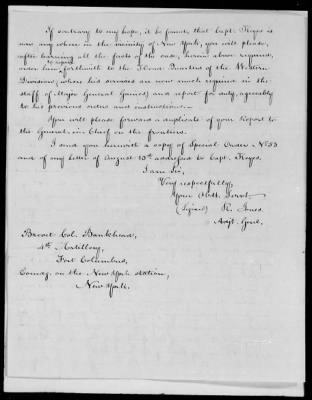 If contrary to my hope, it be found, that Capt. Keyes is
now any where in the vicinity of New York, you will please,
after learning all the facts of the case, herein above required,
order him to repair forthwith to the Florida Frontier of the Western
Division, (where his services are now much required in the
staff of Major General Gaines) and report for duty, agreeably
to his previous orders and instructions.
You will please forward a duplicate of your Report to
the General-in-Chief on the frontiers.
I send you herewith a copy of Special Order, No 53
and of my letter of August 13th addressed to Capt. Keyes.
I am Sir,
Very respectfully,
Your Obdt. Servt.
(Signed) R. Jones.
Adjt. Genl.
Brevet Col. Bankhead,
4th Artillery,
Fort Columbus,
Comdg. on the New York station,
New York.